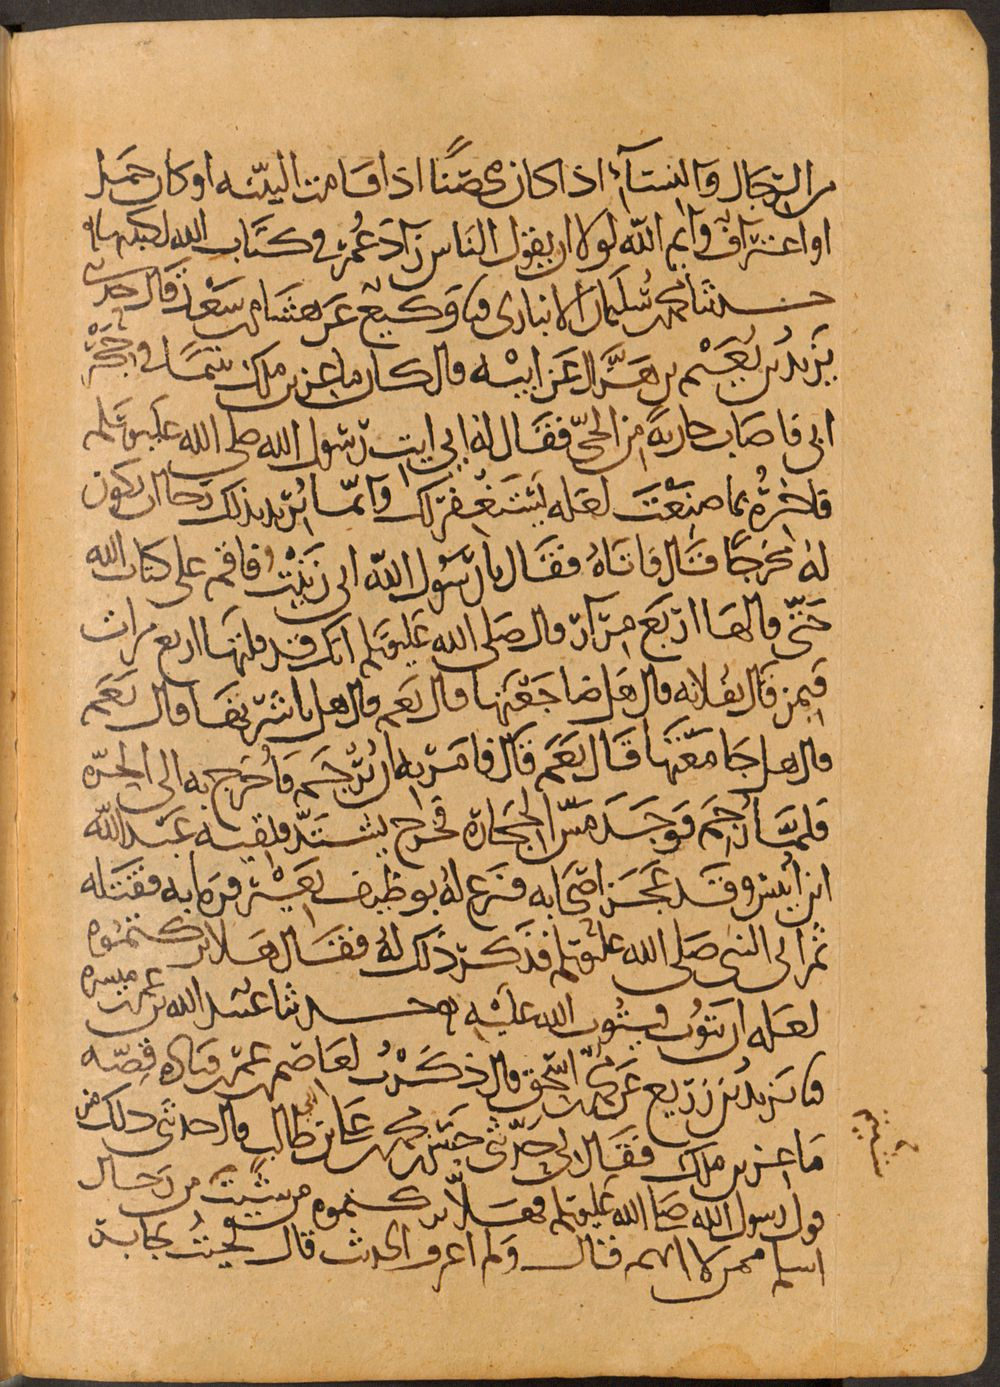 من الرجال والنسآء اذا كان محصنًا اذا قامت البينه او كان حمل
او اعتراف وايم الله لولا ان يقول الناس زاد عمر في كتاب الله لكتبتها
حدثنا محمد بن سليمان الانباري نا وكيع عن هشام بن سعد قال حدثني
يزيد بن نعيم بن هزال عن ابيه قال كان ماعز بن ملك يتيما في حجر
ابي فاصاب جارية من الحي فقال له ابي ايت رسول الله صلى الله عليه وسلم
فاخبره بما صنعت لعله يستغفر لك وانما يريد بذلك رجا ان يكون
له مخرجا قال فاتاه فقال يا رسول الله اني زنيت فاقم علي كتاب الله
حتى قالها اربع مرار قال صلى الله عليه وسلم انك قد قلتها اربع مرات
فبمن قال بفلانه قال هل ضاجعتها قال نعم قال هل باشرتها قال نعم
قال هل جامعتها قال نعم قال فامر به ان يرجم فأخرج به الى الحره
فلما رجم فوجد مس الحجارة فخرج يشتد فلقيه عبد الله
ابن أنيس وقد عجز اصحابه فنزع له بوظيف بعير فرماه به فقتله
ثم اتى النبي صلى الله عليه وسلم فذكر ذلك له فقال هلا تركتموه
لعله ان يتوب فيتوب الله عليه حدثنا عبيد الله بن عمر بن ميسره
نا يزيد بن زريع عن محمد بن اسحق قال ذكرت لعاصم بن عمر بن قتاده قصه
ماعز بن ملك فقال لي حدثني حسن بن محمد بن علي بن ابي طالب قال حدثني ذلك من
قول رسول الله صلى الله عليه وسلم فهلا تركتموه من شيت من رجال
اسلم ممن لا اتهم قال ولم اعرف الحديث قال فجيت جابر بن